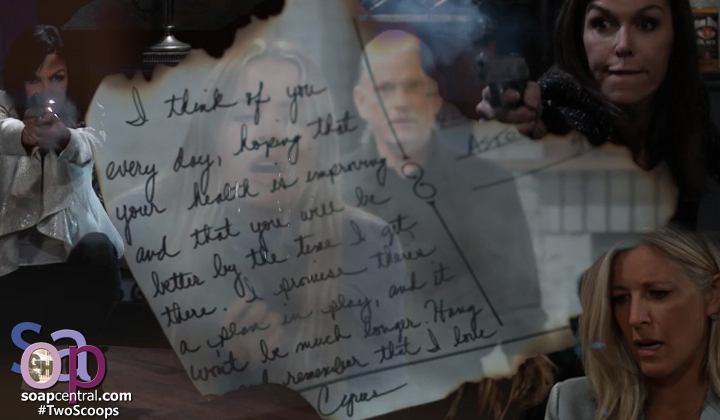 I think of you
every day, hoping that
your health is improving
and that you will be
better by the time I get
there. I promise there's
a plan in play, and it
won't be much longer. Hang
remember that I love
Cyrus
soap
GH
soapcentral.com
#TwoScoops